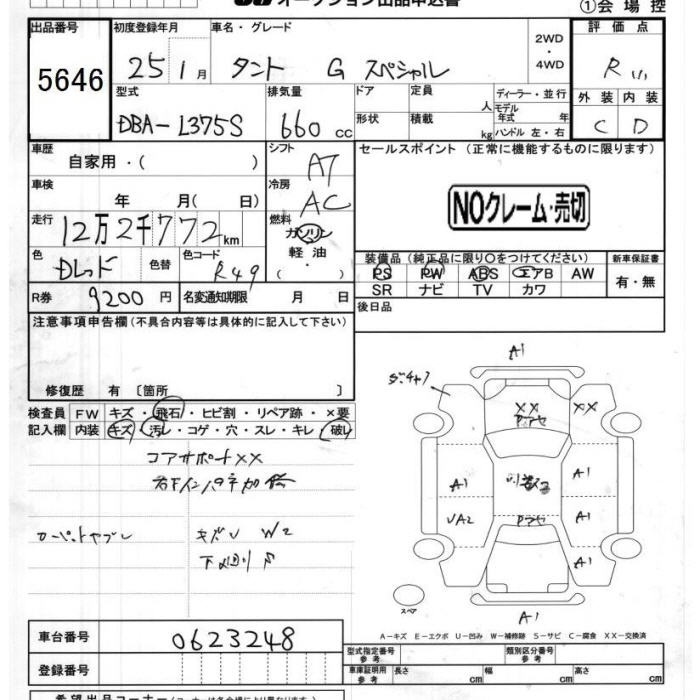 オークション出品申込書
①会場控
出品番号 初度登録年月 車名・グレード 2WD ・ 4WD 評価点
5646 25 1月 タント G スペシャル R
型式 排気量 ドア 定員 人 ディーラー・並行 外装 内装
DBA-L375S 660cc 形状 積載 kg モデル年式 年 ハンドル 左・右 C D
車歴 自家用・( ) シフト AT セールスポイント (正常に機能するものに限ります)
車検 年 月( 日) 冷房 AC NOクレーム・売切
走行 12万2千772km 燃料 ガソリン
軽油
( )
色 Dレッド 色替 色コード R49
装備品 (純正品に限り○をつけてください) 新車保証書
PS PW ABS エアB AW 有・無
SR ナビ TV カワ
R券 9200円 名変通知期限 月 日 後日品
注意事項申告欄 (不具合内容等は具体的に記入して下さい)
修復歴 有 [箇所 ]
検査員 FW キズ・飛石・ヒビ割・リペア跡・×要
記入欄 内装 キズ・汚レ・コゲ・穴・スレ・キレ・破レ
コアサポートXX
カーペットヤブレ キズU W2
A1
XX XX
A1 A1
UA2 A1
A1
スペア A1
A-キズ E-エクボ U-凹み W-補修跡 S-サビ C-腐食 XX-交換済
車台番号 0623248
登録番号
型式指定番号 参考 類別区分番号 参考
車庫証明用 参考 長さ cm 幅 cm 高さ cm
希望出品コーナー